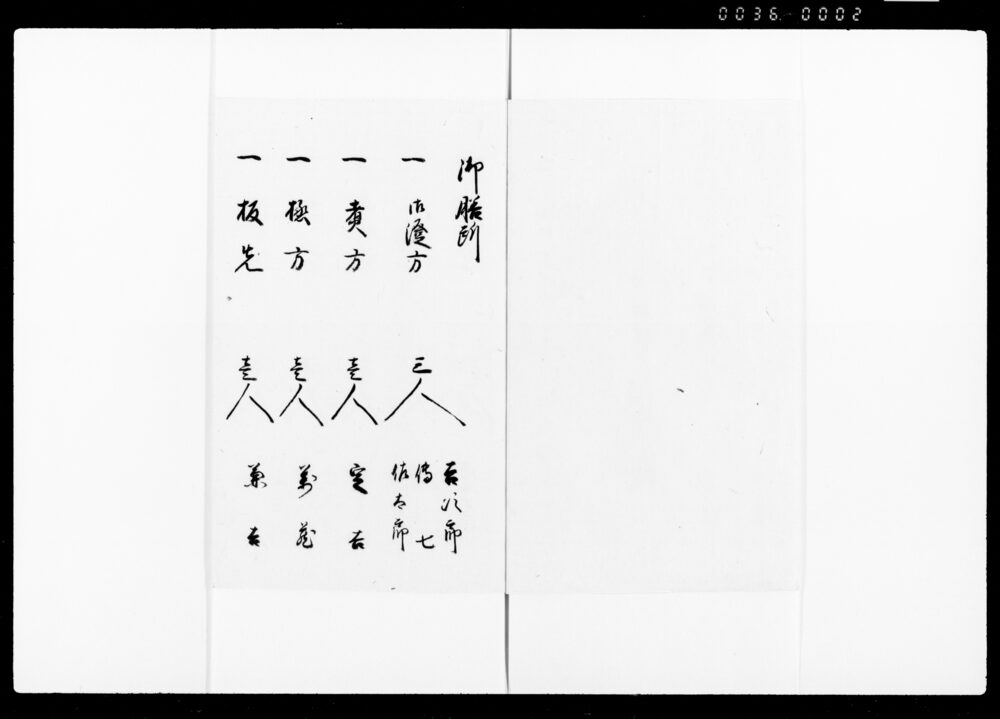 0036 0002
御膳所
一 御澄方 三人 吉次郎
傳七
佐太郎
一 煮方 壱人 定吉
一 方 壱人 萬蔵
一 板先 壱人 兼吉